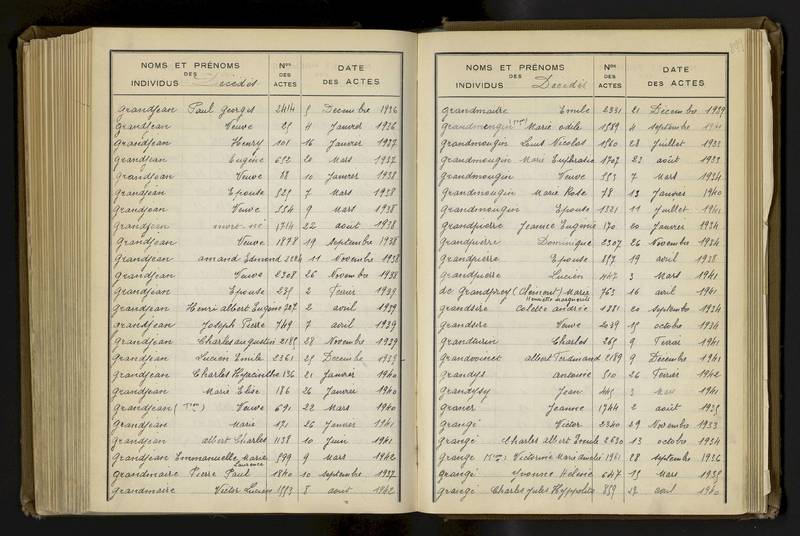 NOMS ET PRÉNOMS DES INDIVIDUS Décédés Nos DES ACTES DATE DES ACTES
Grandjean Paul Georges 2414 5 Décembre 1936
Grandjean Veuve 25 4 Janvier 1936
Grandjean Henry 101 16 Janvier 1937
Grandjean Eugène 652 20 Mars 1937
Grandjean Veuve 88 10 Janvier 1938
Grandjean Epouse 525 7 Mars 1938
Grandjean Veuve 554 9 Mars 1938
Grandjean mort-né 1714 22 août 1938
Grandjean Veuve 1878 19 Septembre 1938
Grandjean amand Edmond 2224 11 Novembre 1938
Grandjean Veuve 2308 26 Novembre 1938
Grandjean Epouse 235 2 Février 1939
Grandjean Henri albert Eugène 727 2 avril 1939
Grandjean Joseph Pierre 749 7 avril 1939
Grandjean Charles augustin 2185 28 Novembre 1939
Grandjean Lucien Emile 2361 25 Décembre 1939
Grandjean Charles Hyacinthe 136 21 Janvier 1940
Grandjean Marie Elise 186 26 Janvier 1940
Grandjean Veuve 691 22 Mars 1940
Grandjean Marie 171 26 Janvier 1941
Grandjean albert Charles 1138 10 Juin 1941
Grandjean Emmanuelle Marie Laurence 599 9 Mars 1942
Grandmaire Pierre Paul 1840 10 septembre 1937
Grandmaire Victor Lucien 1553 8 août 1942
NOMS ET PRÉNOMS DES INDIVIDUS Décédés Nos DES ACTES DATE DES ACTES
Grandmaire Emile 2331 21 Décembre 1939
Grandmengin Marie Odile 1589 4 septembre 1941
Grandmougin Louis Nicolas 1560 28 Juillet 1933
Grandmougin Marie Euphrasie 1707 23 août 1933
Grandmougin Veuve 553 7 Mars 1934
Grandmougin Marie Rose 78 13 Janvier 1940
Grandmougin Epouse 1321 11 Juillet 1941
Grandpierre Jeanne Eugénie 170 20 Janvier 1934
Grandpierre Dominique 2307 26 Novembre 1934
Grandpierre Epouse 817 19 avril 1938
Grandpierre Lucien 447 3 Mars 1941
de Grandprey (Clément) Marie Henriette Marguerite 763 16 avril 1941
Grandsire Colette andrée 1881 20 septembre 1934
Grandsire Veuve 2039 15 octobre 1934
Grandturin Charles 265 9 Février 1941
Grandvoinet albert Ferdinand 2189 9 Décembre 1941
Grandys antoine 510 26 Février 1942
Grandysy Jean 445 3 Mars 1941
Graner Jeanne 1744 2 août 1935
Grangé Victor 2340 29 Novembre 1933
Grangé Charles Albert Emile 2630 13 octobre 1934
Grangé Victorine Marie 1961 28 septembre 1936
Grangé Yvonne Hélène 647 15 Mars 1939
Grangé Charles Jules Hyppolite 859 17 avril 1940